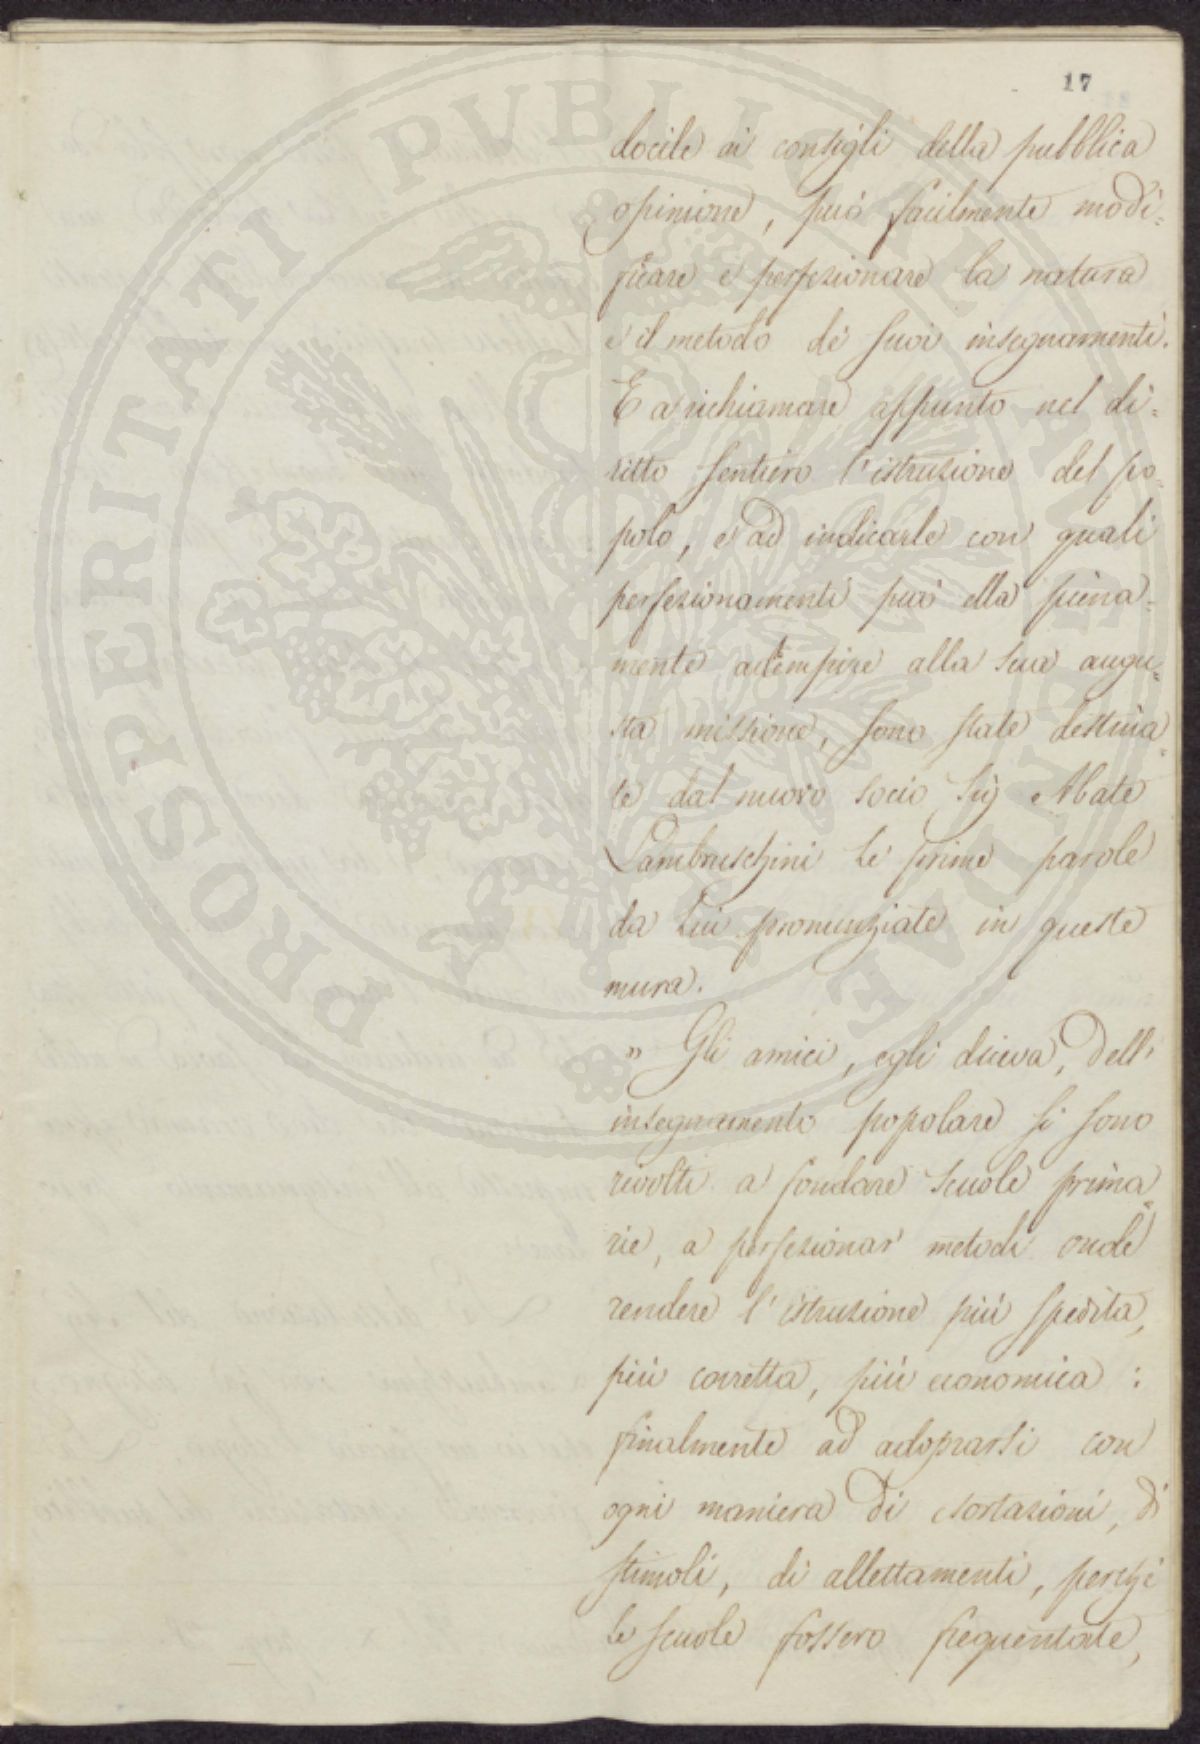 17
docile ai consigli della pubblica
opinione, può facilmente modi=
ficare e perfezionare la natura
e il metodo de' suoi insegnamenti.
E a richiamare appunto nel di=
ritto sentiero l'istruzione del po=
polo, e ad indicarle con quali
perfezionamenti può ella piena=
mente adempire alla sua augu=
sta missione, sono state destina=
te dal nuovo socio Sig Abate
Lambruschini le prime parole
da Lui pronunziate in queste
mura.
" Gli amici, egli diceva, dell'
insegnamento popolare si sono
rivolti a fondare scuole prima=
rie, a perfezionar' metodi onde
rendere l'istruzione più spedita,
più corretta, più economica :
finalmente ad adoprarsi con
ogni maniera di esortazioni, di
stimoli, di allettamenti, perchè
le scuole fossero frequentate,
PROSPERITATI PUBLICAE AUGENDAE